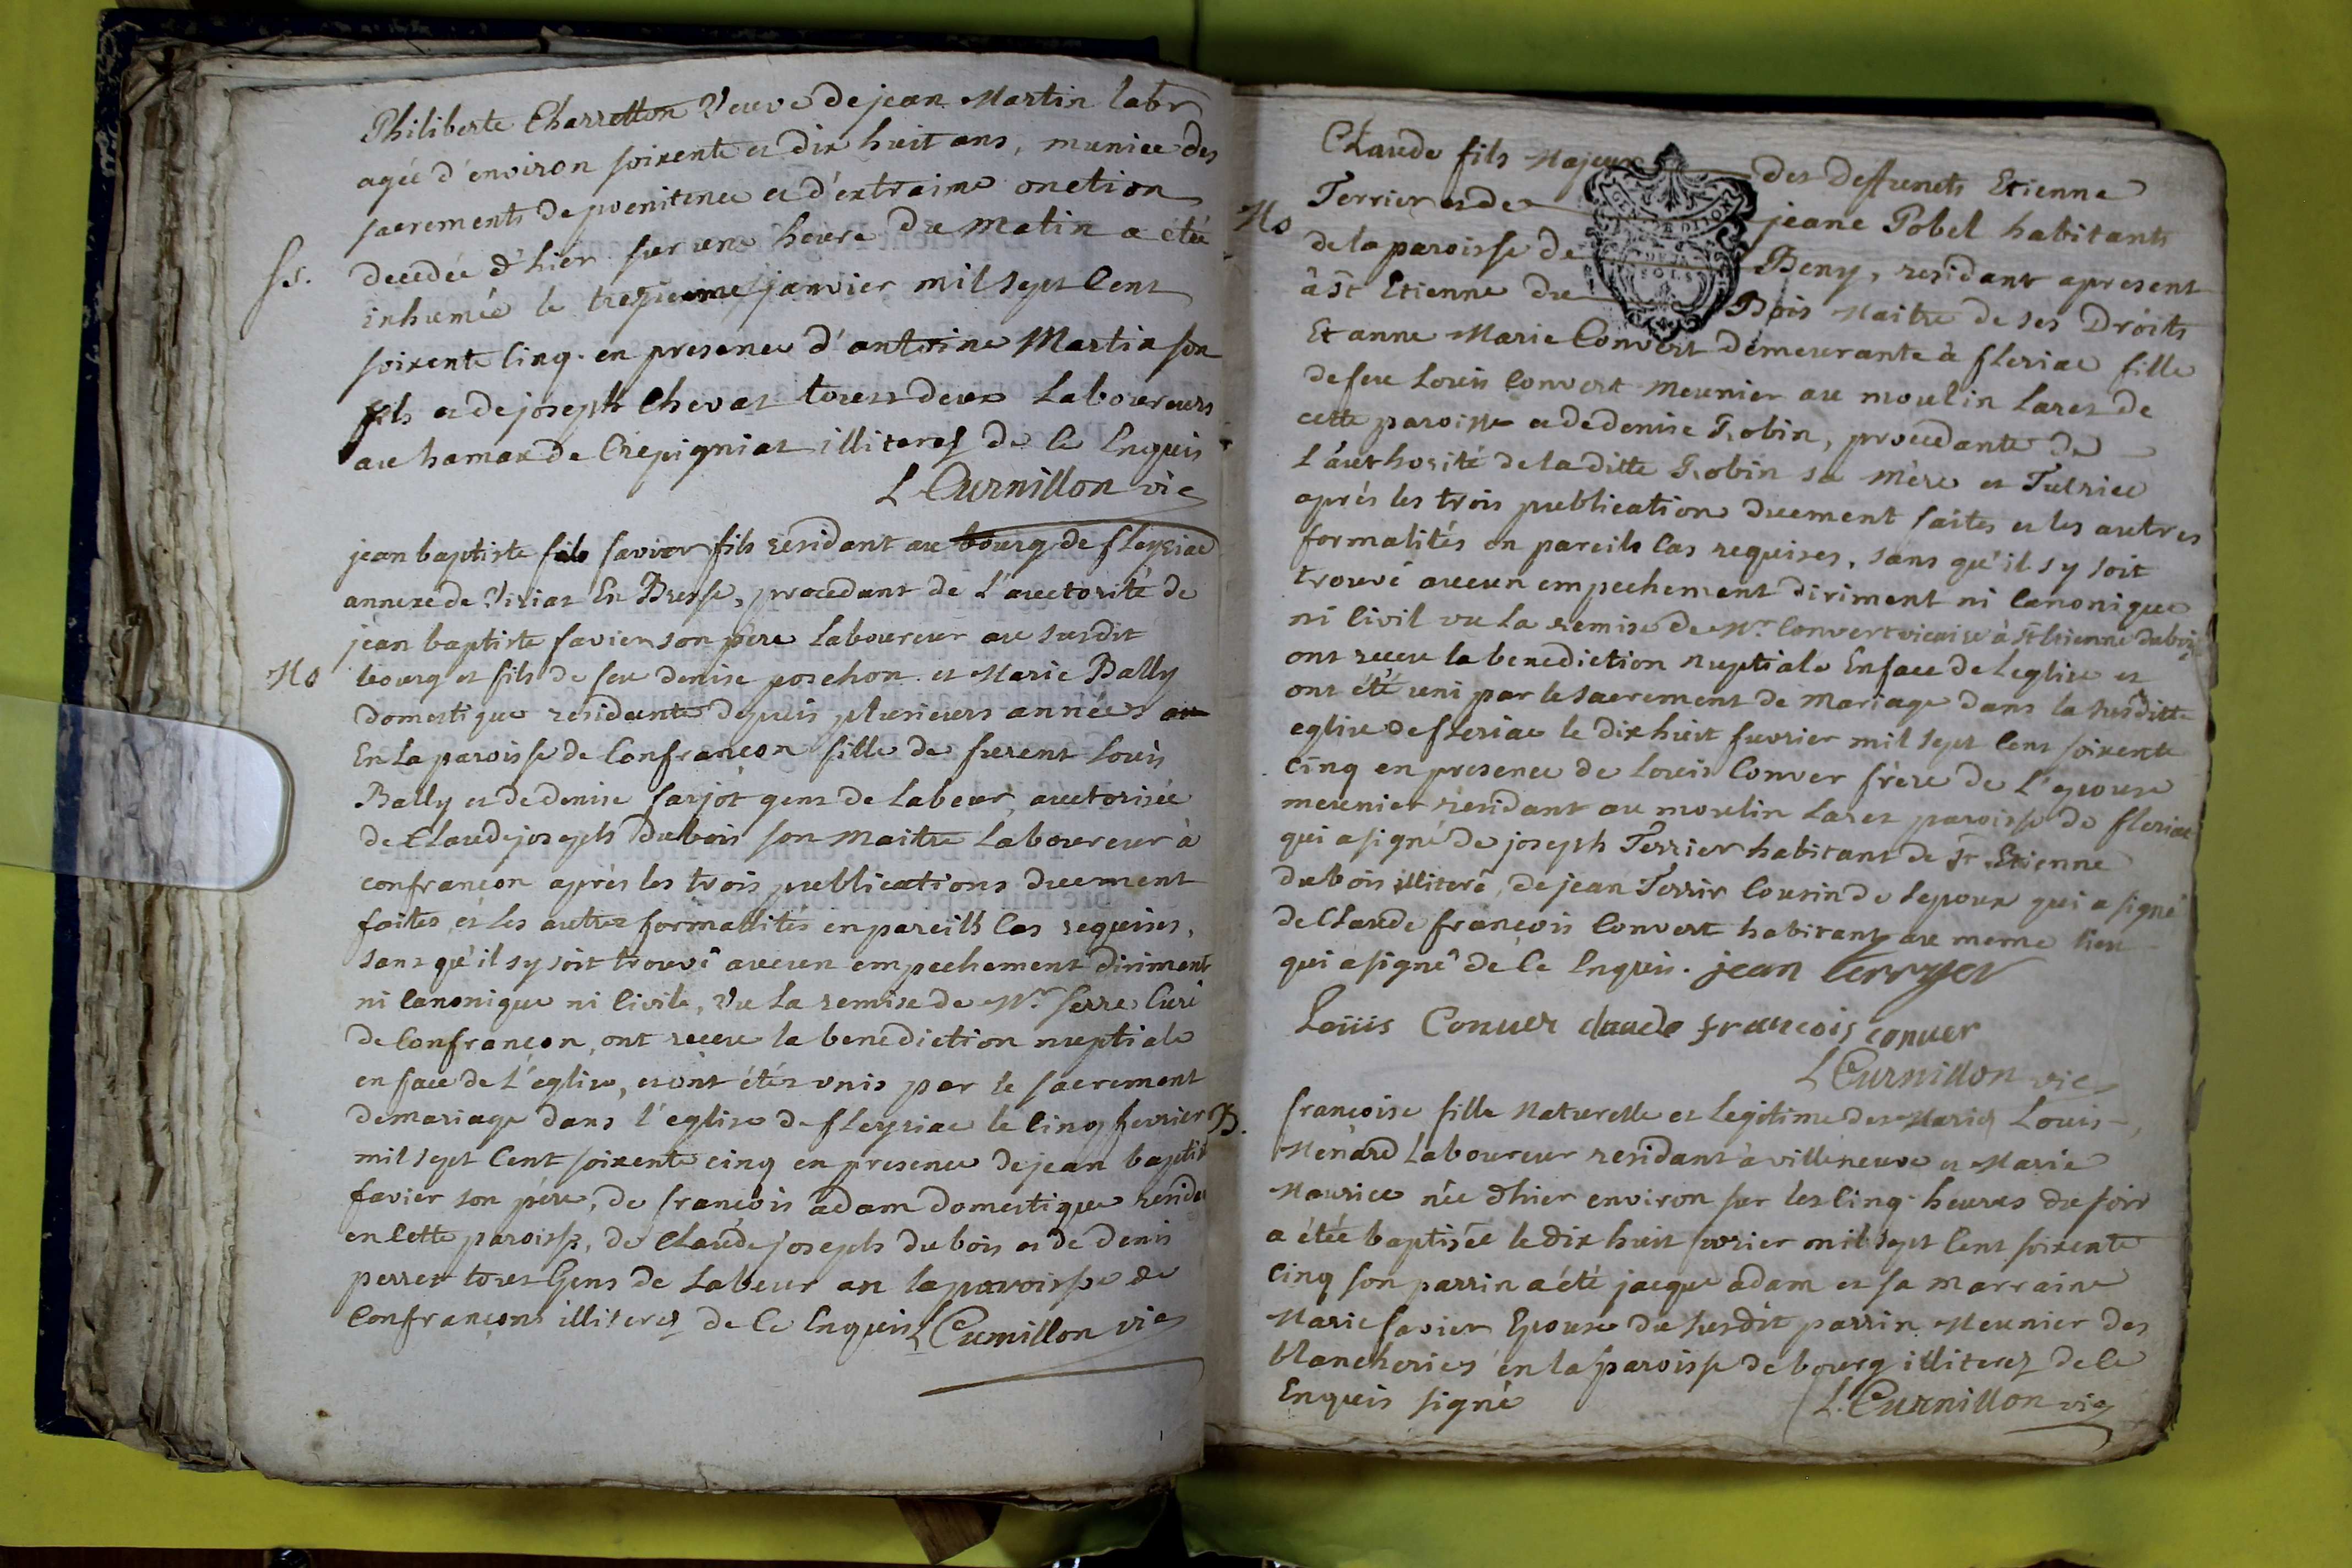 Philiberte Charretton Veuve de jean Martin labr
agée d'environ soixente et dix huit ans, muniee des
sacrements de poenitence et d'extraime onction
ss. decedée d'hier sur une heure du matin a étée
inhumée le treizieme janvier mil sept Cent
soixente Cinq. en presence d'antoine Martin son
fils et de joseph Chevat tous deux Laboureurs
au hamax de Crepigniat illiterez de Ce Enquis
L Curnillon vic
jean baptiste favier fils residant au bourg de fleyriac
annexe de Viriat En Bresse, procedant de L'auctorité de
jean baptiste favier son père Laboureur au susdit
Mo bourg et fils de feu denise poschon. et Marie Bally
domestique residante depuis plusieurs années
En La paroisse de Confrançon fille de furent Louis
Bally et de denise farjot gens de Labeur, auctorisée
de Claude joseph Dubois son maitre Laboureur à
confrançon après les trois publications duement
faites, et Les autres formallités en pareills Cas requises,
sans qu'il sy soit trouvé aucun empechement diriment
ni Canonique ni Civile, Vu La remise de Mr. Serre Curé
de Confrançon, ont receu la benediction nuptiale
en face de L'eglise, et ont étés unis par le sacrement
de mariage dans l'eglise de fleyriac le Cinq fevrier
mil sept Cent soixente cinq en presence de jean baptis
favier son père, de françois adam domestique resida
en Cette paroisse, de Claude joseph dubois et de denis
perret tous Gens de Labeur an la paroisse de
Confrançons illiterez de Ce Enquis L Curnillon vic
Claude fils Majeur des deffuncts Etienne
Mo Terrier et de jeane Pobel habitants
de la paroisse de Beny, residant apresent
à St Etienne du Bois Maitre de ses Droits
Et anne Marie Convert demeurante à fleriac fille
de feu Louis Convert meunier au moulin Laret de
cette paroisse et de denise Robin, procedante de
L'authorité de la ditte Robin sa mère et Tutrice
après les trois publication duement faites et les autres
formalités en pareils Cas requises, sans qu'il sy soit
trouvé aucun empechement diriment ni Canonique
ni Civil vu La remise de Mr. Convert vicaire à St Etienne dubois
ont receu la benediction nuptiale En face de Leglise et
ont été uni par le sacrement de Mariage dans la susditte
eglise de fleriac le dix huit fuvrier mil sept Cent soixente
Cinq en presence de Louis Conver frère de L'epouse
meunier residant au moulin Laret paroisse de fleriac
qui a signé de joseph Terrier habitant de St Etienne
dubois illiteré, de jean Terrir Cousin de Lepoux qui a signé
de Claude françois Convert habitant au meme lieu
qui a signé de Ce Enquis. jean terryer
Loüis Conuer claude francois conuer
L Curnillon vic
B. françoise fille Naturelle et Legitime des Mariés Louis
Ménard Laboureur residant à villeneuve et Marie
Maurice née d'hier environ sur les Cinq heures du soir
a étée baptisée le dix huit fuvrier mil sept Cent soixente
Cinq son parrin a été jacque adam et sa marraine
Marie favier Epouse du susdit parrin Meunier des
blancheries en la paroisse de bourg illiterez de Ce
Enquis signé L. Curnillon vic